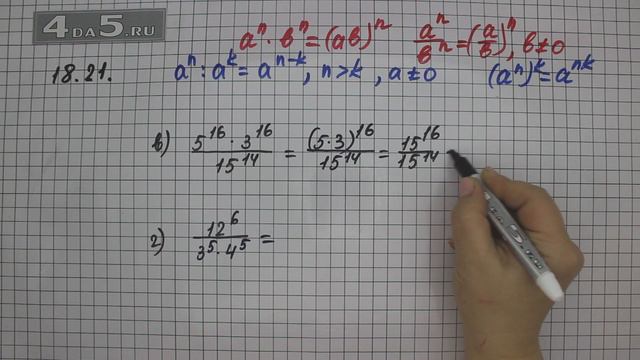 4DA5.RU
aⁿ · bⁿ = (ab)ⁿ   aⁿ/bⁿ = (a/b)ⁿ, b≠0
18.21.   aⁿ : aᵏ = aⁿ⁻ᵏ, n>k, a≠0   (aⁿ)ᵏ = aⁿᵏ
в) 5¹⁶ · 3¹⁶ / 15¹⁴ = (5·3)¹⁶ / 15¹⁴ = 15¹⁶ / 15¹⁴
г) 12⁶ / 3⁵ · 4⁵ =